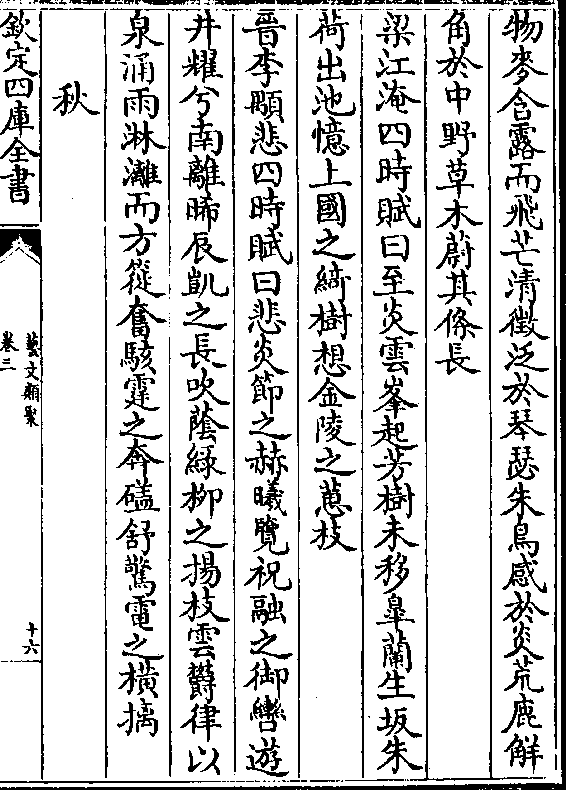 物麥含露而飛芒清徵泛於琴瑟朱鳥感於炎荒鹿解
角於中野草木蔚其條長
梁江淹四時賦曰至炎雲峯起芳樹未移皐蘭生坂朱
荷出池憶上國之綺樹想金陵之蕙枝
晉李顒悲四時賦曰悲炎節之赫曦覽祝融之御轡遊
井耀兮南離晞辰凱之長吹蔭綠柳之揚枝雲欝律以
泉涌雨淋灕而方蓰奮駭霆之奔礚舒驚電之横摛
秋
欽定四庫全書
藝文類聚
卷三
十六